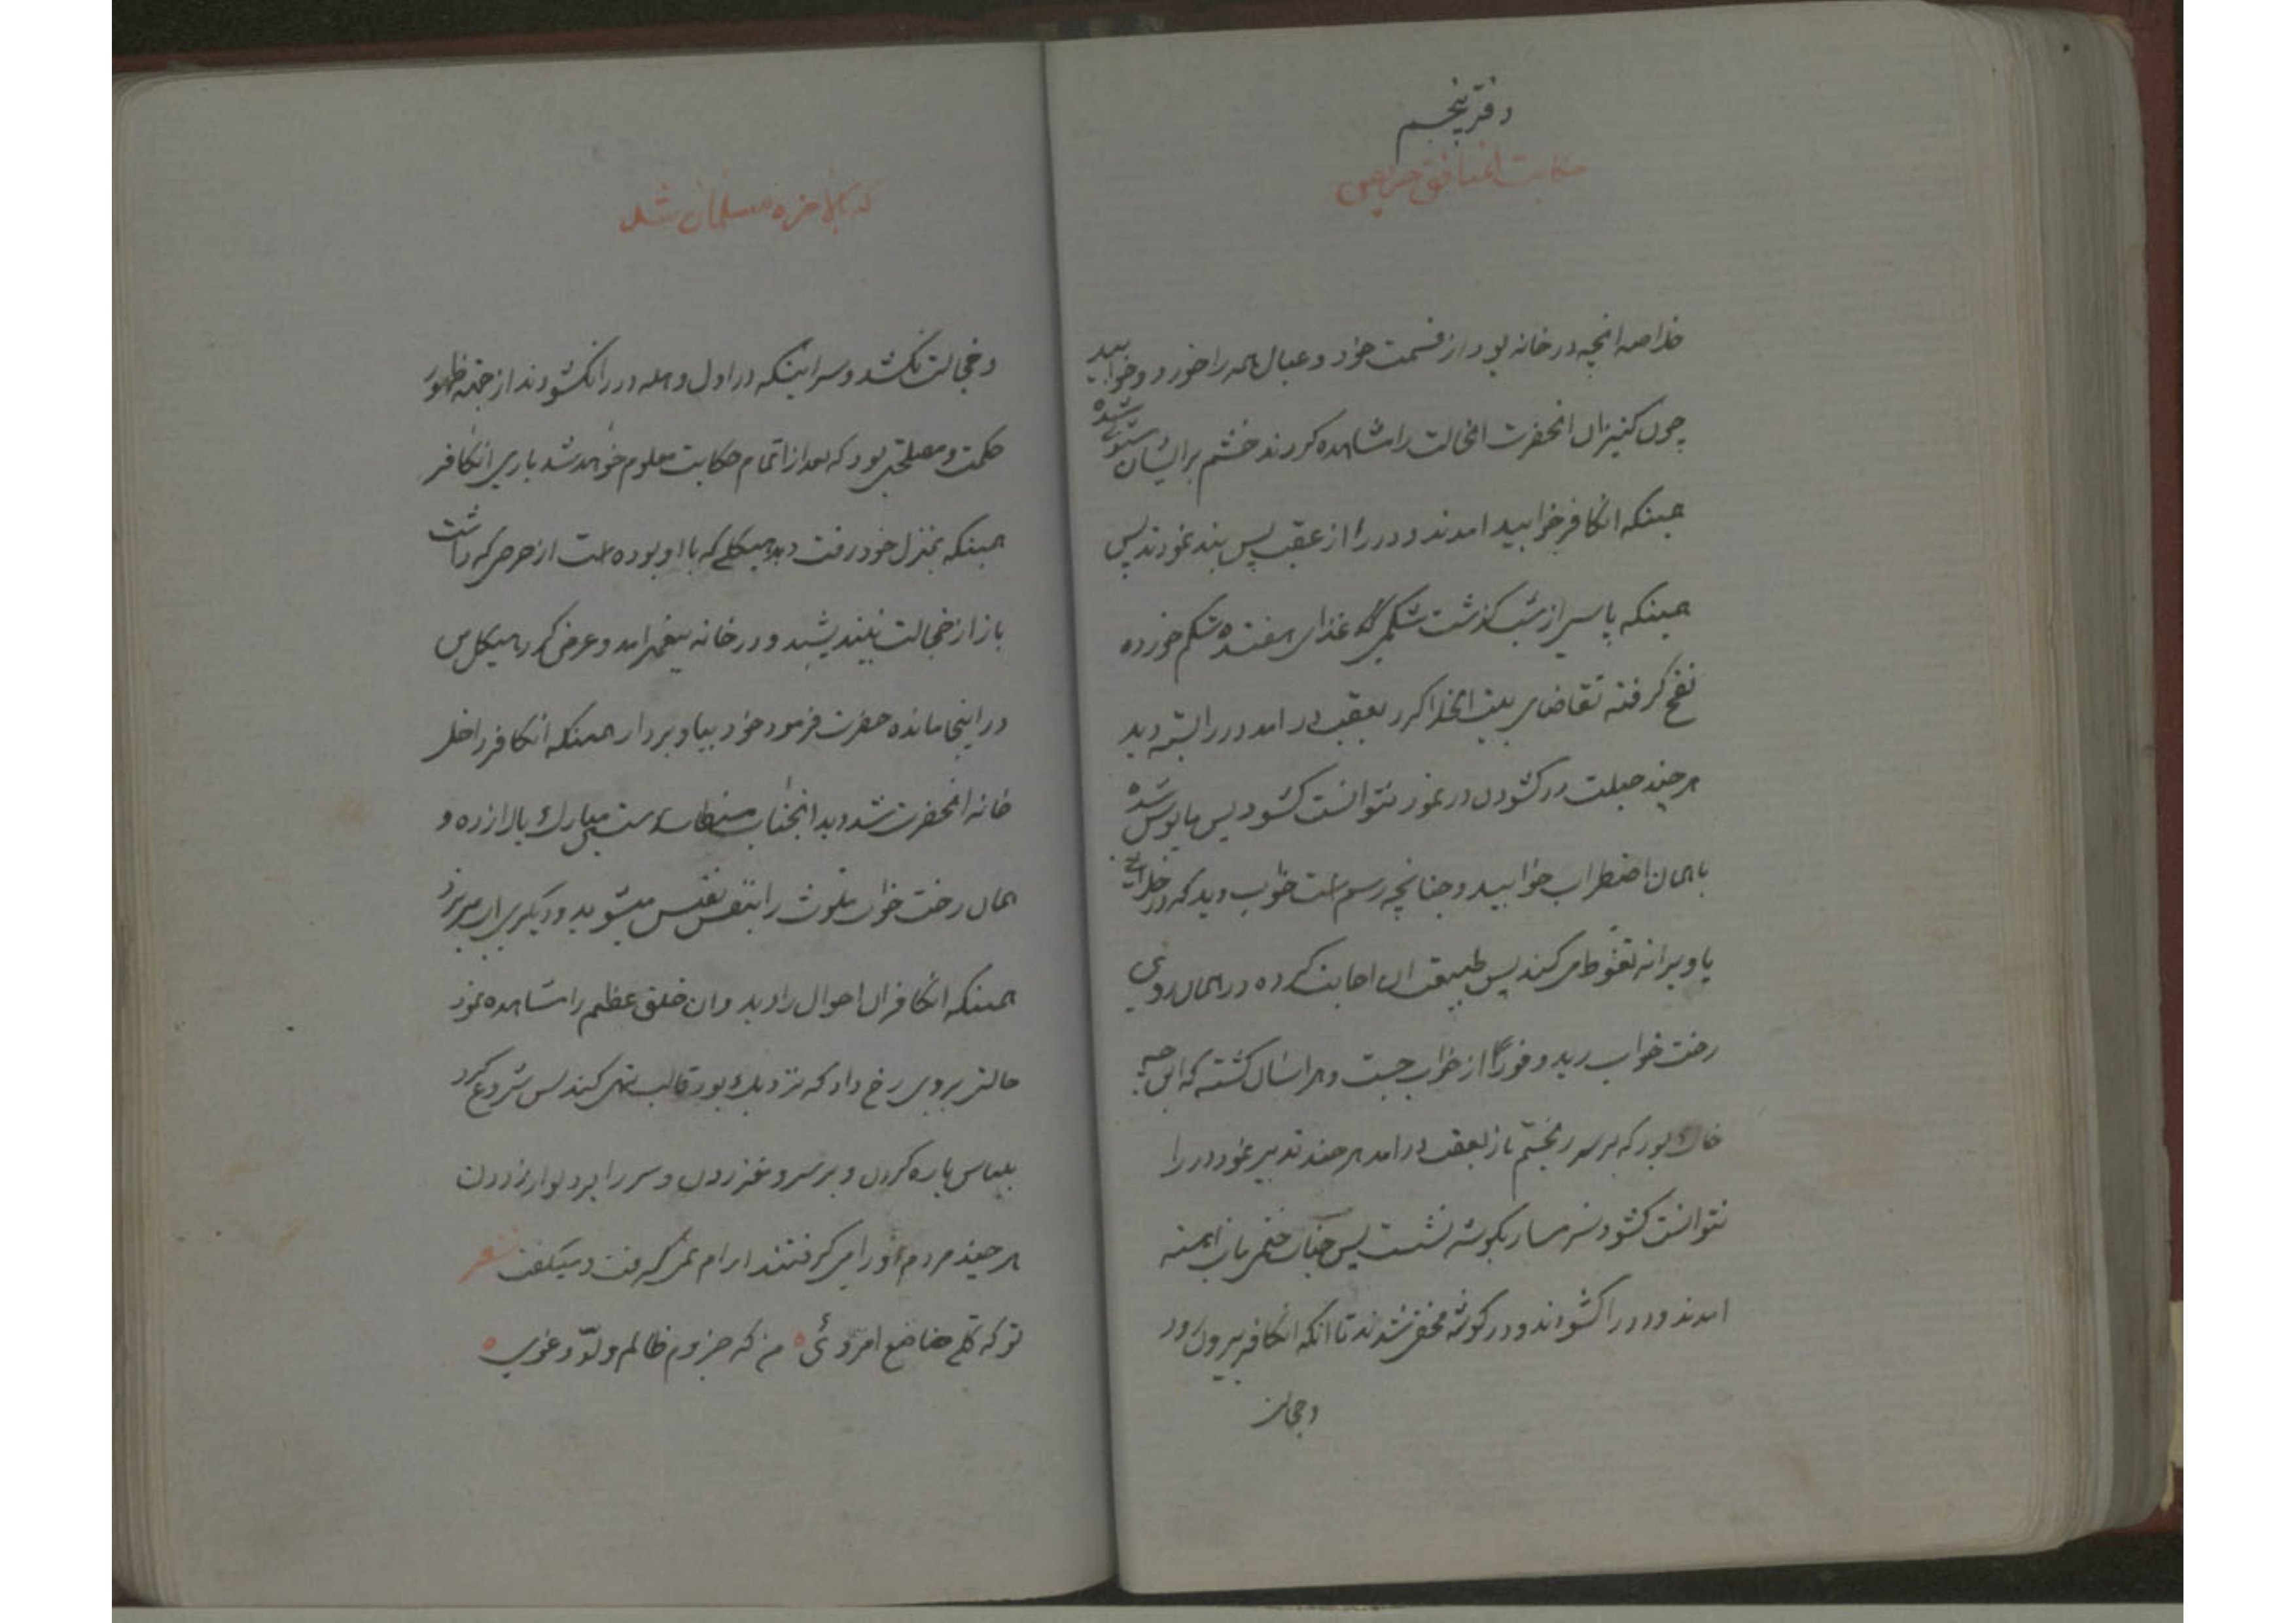 دفتر پنجم
حکایت منافق حریص
خلاصه انچه در خانه بود از قسمت خود و عیال همه را خورد و خوابید
چون کنیزان انحضرت انحالت را مشاهده کردند خشم بر ایشان مستولی شده
همینکه انکافر خوابید امدند و در را از عقب پس بند نمودند پس
همینکه پاسی از شب کذشت شکمی که غذای هفده شکم خورده
نفخ کرفته تقاضای بیت الخلا کرد بعقب در امد در را بسته دید
هر چند حیلت در کشودن در نمود نتوانست کشود پس مایوس شده
با همان اضطراب خوابید و چنانچه رسم است خواب دید که در خلائی
یا ویرانه تغوط می کند پس طبیعت ان اجابت کرده در همان روی
رخت خواب رید و فورا از خواب جست و هراسان کشته که این چه
خاک بود که بر سر ریختم باز بعقب در امد هر چند تدبیر نمود در را
نتوانست کشود شرمسار بکوشه نشست پس جناب ختمی ماب
امدند و در را کشودند و در کوشه مخفی شدند تا انکه انکافر بیرون رود
و خجالت
که بالاخره مسلمان شد
و خجالت نکشد و سر اینکه در اول وهله در را نکشودند از جهة ظهور
حکمت و مصلحتی بود که بعد از اتمام حکایت معلوم خواهد شد باری انکافر
همینکه بمنزل خود رفت دید هیکلی که با او بوده است از حرصی که داشت
باز از خجالت نیندیشید و در خانه پیغمبر امد و عرض کرد هیکل من
در اینجا مانده حضرت فرمود خود بیا و بردار همینکه انکافر داخل
خانه انحضرت شد دید انجناب دست مبارک بالا زده و
همان رخت خواب ملوث را بنفس نفیس میشوید و دیکری اب میریزد
همینکه انکافر ان احوال را دید و ان خلق عظیم را مشاهده نمود
حالتی بر وی رخ داد که نزدیک بود قالب تهی کند پس شروع کرد
بلباس پاره کردن و بر سر و مغز زدن و سر را بر دیوار زدن
هر چند مردم او را می کرفتند ارام نمی کرفت و میکفت شعر
تو که کلی خاضع امر وئی ه من که جزوم ظالم و لد و غوی ه